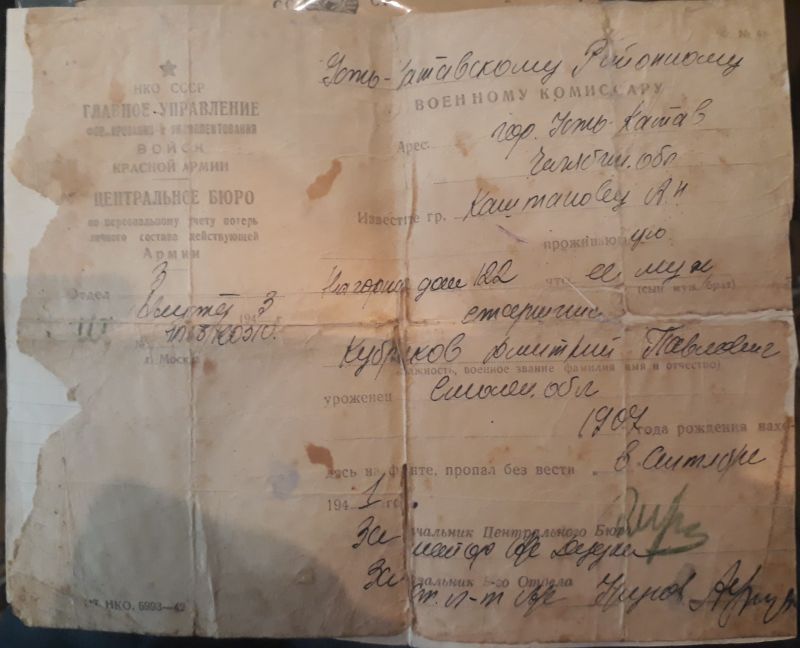 НКО СССР
ГЛАВНОЕ УПРАВЛЕНИЕ
ФОРМИРОВАНИЯ И УКОМПЛЕКТОВАНИЯ
ВОЙСК
КРАСНОЙ АРМИИ
ЦЕНТРАЛЬНОЕ БЮРО
по персональному учету потерь
личного состава действующей
Армии
Отдел 3
194 3 г.
№
г. Москва
Усть-Катавскому Районному
ВОЕННОМУ КОМИССАРУ
Адрес гор. Усть-Катав
обл
Известите гр. Каштановец А Н
проживаю ую
дом 122 что ее муж
(сын муж, брат)
Дмитрий Павлович
должность, военное звание фамилия имя и отчество)
уроженец Смолен. обл
1907 года рождения нахо-
дясь на фронте, пропал без вести в Сентябре
194 1 го
Зам чальник Центрального Бюро
майор
Зам чальник 3-го Отдела
Ст. л-т
т. НКО, 6993—42